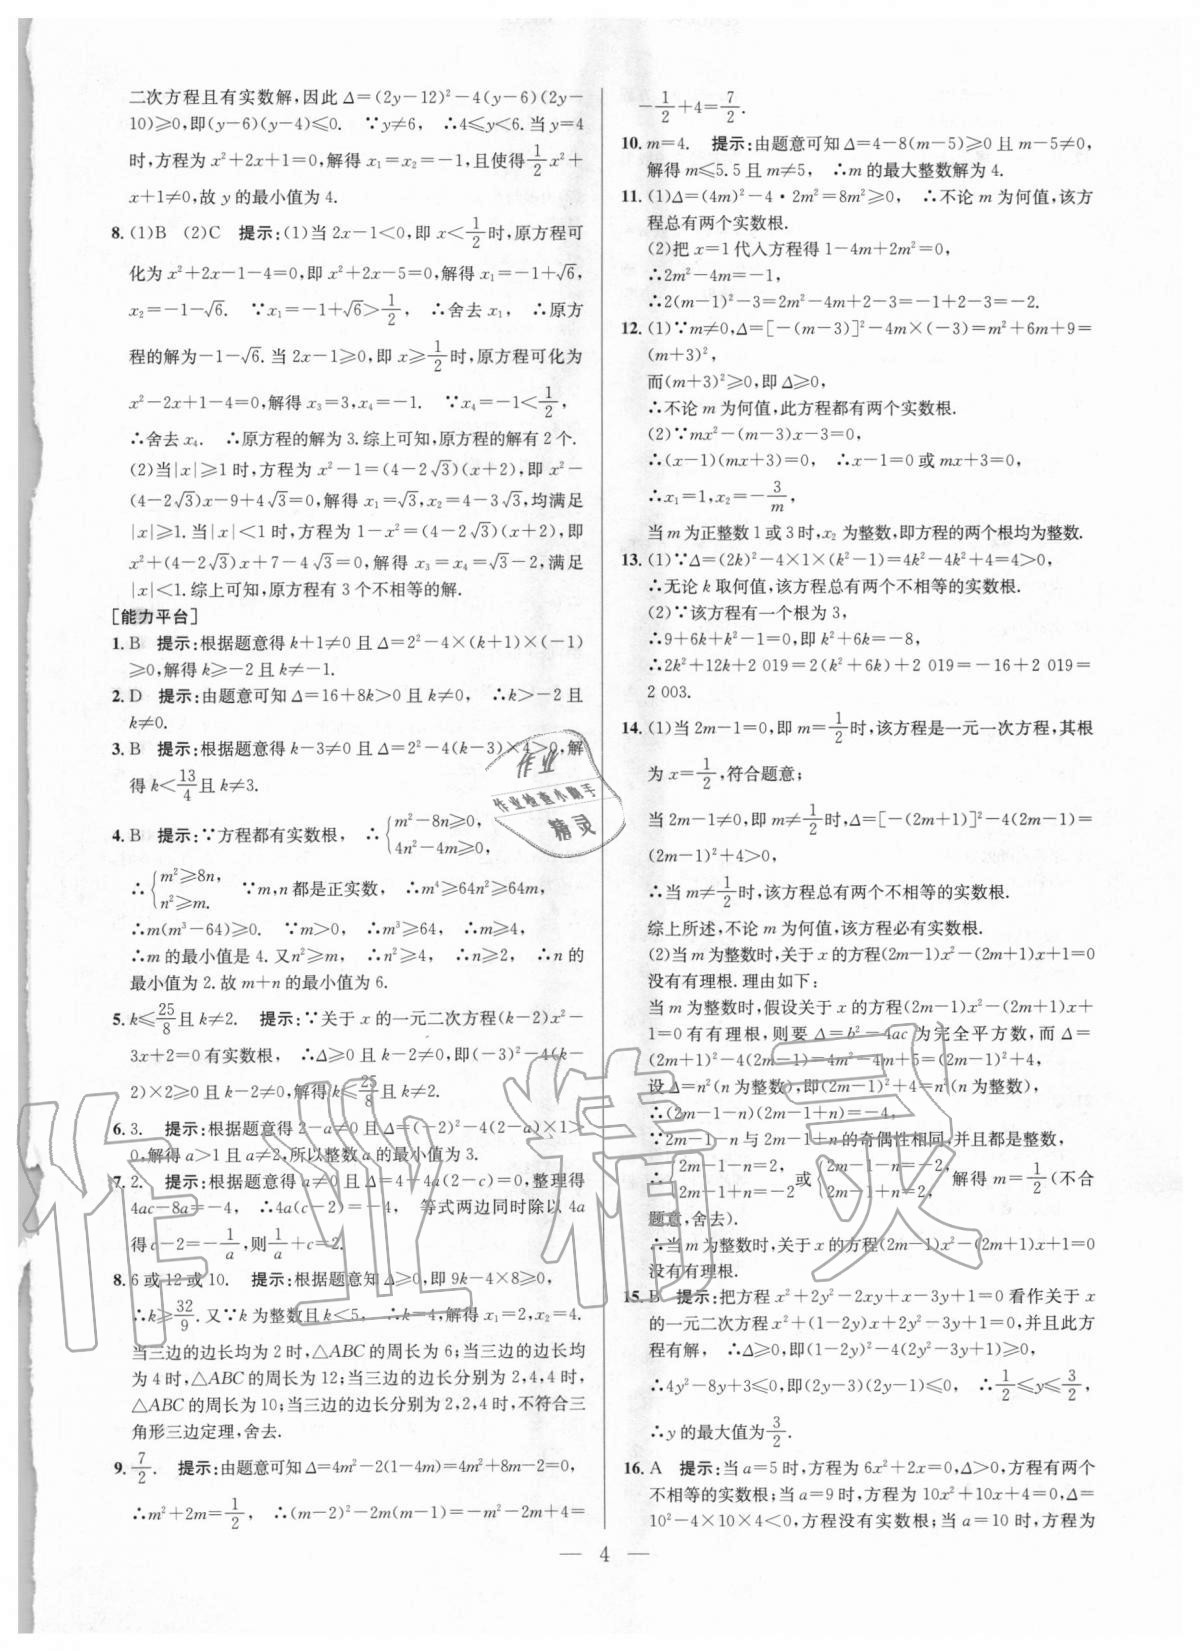 二次方程且有实数解,因此 Δ=(2y−12)²−4(y−6)(2y−
10)≥0,即(y−6)(y−4)≤0. ∵y≠6, ∴4≤y<6.当 y=4
时,方程为 x²+2x+1=0,解得 x₁=x₂=−1,且使得1/2x²+
x+1≠0,故 y 的最小值为 4.
8. (1)B (2)C 提示:(1)当 2x−1<0,即 x<1/2时,原方程可
化为 x²+2x−1−4=0,即 x²+2x−5=0,解得 x₁=−1+√6,
x₂=−1−√6. ∵x₁=−1+√6>1/2, ∴舍去 x₁, ∴原方
程的解为−1−√6.当 2x−1≥0,即 x≥1/2时,原方程可化为
x²−2x+1−4=0,解得 x₃=3,x₄=−1. ∵x₄=−1<1/2,
∴舍去 x₄. ∴原方程的解为 3.综上可知,原方程的解有 2 个.
(2)当|x|≥1 时,方程为 x²−1=(4−2√3)(x+2),即 x²−
(4−2√3)x−9+4√3=0,解得 x₁=√3,x₂=4−3√3,均满足
|x|≥1.当|x|<1 时,方程为 1−x²=(4−2√3)(x+2),即
x²+(4−2√3)x+7−4√3=0,解得 x₃=x₄=√3−2,满足
|x|<1.综上可知,原方程有 3 个不相等的解.
[能力平台]
1. B 提示:根据题意得 k+1≠0 且 Δ=2²−4×(k+1)×(−1)
≥0,解得 k≥−2 且 k≠−1.
2. D 提示:由题意可知 Δ=16+8k>0 且 k≠0, ∴k>−2 且
k≠0.
3. B 提示:根据题意得 k−3≠0 且 Δ=2²−4(k−3)×4>0,解
得 k<13/4且 k≠3.
4. B 提示:∵方程都有实数根, ∴{m²−8n≥0,
4n²−4m≥0,
∴{m²≥8n,
n²≥m. ∵m,n 都是正实数, ∴m⁴≥64n²≥64m,
∴m(m³−64)≥0. ∵m>0, ∴m³≥64, ∴m≥4,
∴m 的最小值是 4.又n²≥m, ∴n²≥4, ∴n≥2, ∴n 的
最小值为 2.故 m+n 的最小值为 6.
5. k≤25/8且 k≠2. 提示:∵关于 x 的一元二次方程(k−2)x²−
3x+2=0 有实数根, ∴Δ≥0 且 k−2≠0,即(−3)²−4(k−
2)×2≥0 且 k−2≠0,解得 k≤25/8且 k≠2.
6. 3. 提示:根据题意得 2−a≠0 且 Δ=(−2)²−4(2−a)×1>
0,解得 a>1 且 a≠2,所以整数 a 的最小值为 3.
7. 2. 提示:根据题意得 a≠0 且 Δ=4−4a(2−c)=0,整理得
4ac−8a=−4, ∴4a(c−2)=−4, 等式两边同时除以 4a
得 c−2=−1/a,则1/a+c=2.
8. 6 或 12 或 10. 提示:根据题意知 Δ≥0,即 9k−4×8≥0,
∴k≥32/9.又∵k 为整数且 k<5, ∴k=4,解得 x₁=2,x₂=4.
当三边的边长均为 2 时,△ABC 的周长为 6;当三边的边长均
为 4 时,△ABC 的周长为 12;当三边的边长分别为 2,4,4 时,
△ABC 的周长为 10;当三边的边长分别为 2,2,4 时,不符合三
角形三边定理,舍去.
9. 7/2. 提示:由题意可知 Δ=4m²−2(1−4m)=4m²+8m−2=0,
∴m²+2m=1/2, ∴(m−2)²−2m(m−1)=−m²−2m+4=
−1/2+4=7/2.
10. m=4. 提示:由题意可知 Δ=4−8(m−5)≥0 且 m−5≠0,
解得 m≤5.5 且 m≠5, ∴m 的最大整数解为 4.
11. (1)Δ=(4m)²−4·2m²=8m²≥0, ∴不论 m 为何值,该方
程总有两个实数根.
(2)把 x=1 代入方程得 1−4m+2m²=0,
∴2m²−4m=−1,
∴2(m−1)²−3=2m²−4m+2−3=−1+2−3=−2.
12. (1)∵m≠0,Δ=[−(m−3)]²−4m×(−3)=m²+6m+9=
(m+3)²,
而(m+3)²≥0,即 Δ≥0,
∴不论 m 为何值,此方程都有两个实数根.
(2)∵mx²−(m−3)x−3=0,
∴(x−1)(mx+3)=0, ∴x−1=0 或 mx+3=0,
∴x₁=1,x₂=−3/m,
当 m 为正整数 1 或 3 时,x₂ 为整数,即方程的两个根均为整数.
13. (1)∵Δ=(2k)²−4×1×(k²−1)=4k²−4k²+4=4>0,
∴无论 k 取何值,该方程总有两个不相等的实数根.
(2)∵该方程有一个根为 3,
∴9+6k+k²−1=0,即 k²+6k=−8,
∴2k²+12k+2 019=2(k²+6k)+2 019=−16+2 019=
2 003.
14. (1)当 2m−1=0,即 m=1/2时,该方程是一元一次方程,其根
为 x=1/2,符合题意;
当 2m−1≠0,即 m≠1/2时,Δ=[−(2m+1)]²−4(2m−1)=
(2m−1)²+4>0,
∴当 m≠1/2时,该方程总有两个不相等的实数根.
综上所述,不论 m 为何值,该方程必有实数根.
(2)当 m 为整数时,关于 x 的方程(2m−1)x²−(2m+1)x+1=0
没有有理根.理由如下:
当 m 为整数时,假设关于 x 的方程(2m−1)x²−(2m+1)x+
1=0 有有理根,则要 Δ=b²−4ac 为完全平方数,而 Δ=
(2m+1)²−4(2m−1)=4m²−4m+5=(2m−1)²+4,
设 Δ=n²(n 为整数),即(2m−1)²+4=n²(n 为整数),
∴(2m−1−n)(2m−1+n)=−4,
∵2m−1−n 与 2m−1+n 的奇偶性相同,并且都是整数,
∴{2m−1−n=2,
2m−1+n=−2 或{2m−1−n=−2,
2m−1+n=2, 解得 m=1/2(不合
题意,舍去).
∴当 m 为整数时,关于 x 的方程(2m−1)x²−(2m+1)x+1=0
没有有理根.
15. B 提示:把方程 x²+2y²−2xy+x−3y+1=0 看作关于 x
的一元二次方程 x²+(1−2y)x+2y²−3y+1=0,并且此方
程有解, ∴Δ≥0,即(1−2y)²−4(2y²−3y+1)≥0,
∴4y²−8y+3≤0,即(2y−3)(2y−1)≤0, ∴1/2≤y≤3/2,
∴y 的最大值为3/2.
16. A 提示:当 a=5 时,方程为 6x²+2x=0,Δ>0,方程有两个
不相等的实数根;当 a=9 时,方程为 10x²+10x+4=0,Δ=
10²−4×10×4<0,方程没有实数根;当 a=10 时,方程为
— 4 —
作业
作业检查小助手
精灵
作业精灵